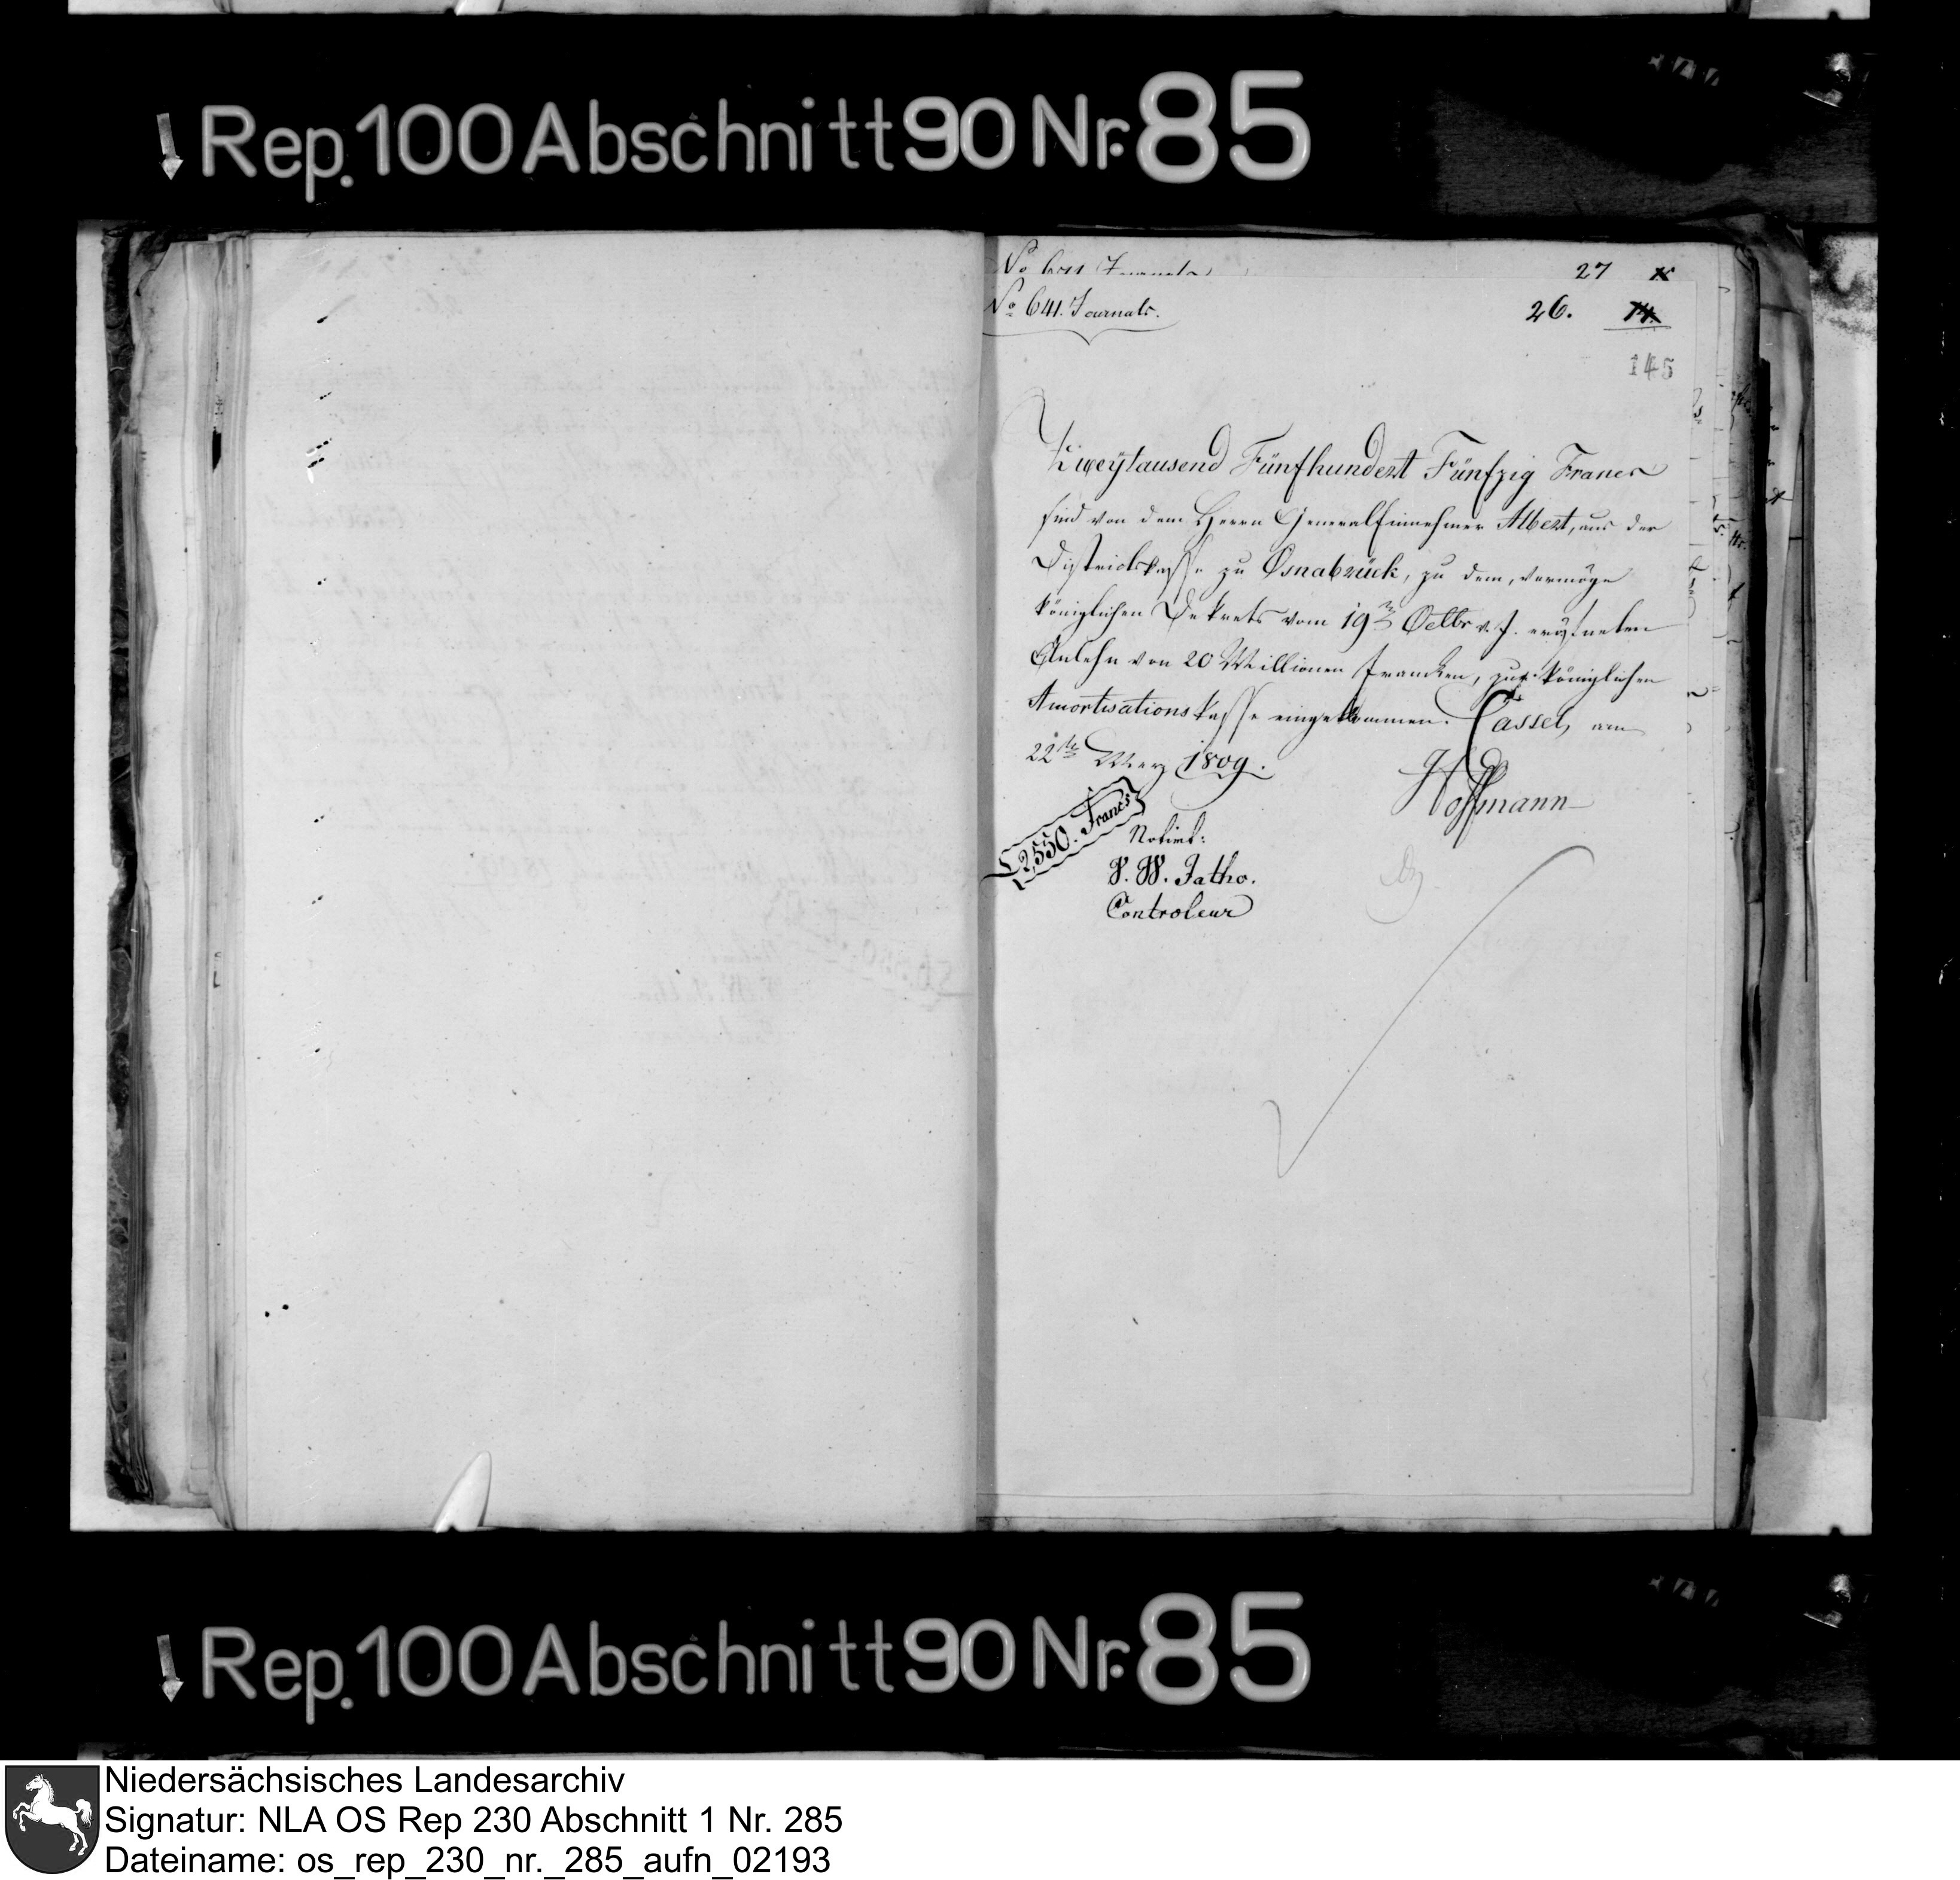 Rep. 100 Abschnitt 90 Nr. 85
27
No 641. Journals.
26. 14.
145
Zweytausend Fünfhundert Fünfzig Francs
sind von dem Herrn GeneralEinnehmer Albert, aus der
Districtskasse zu Osnabrück, zu dem, vermöge
königlichen Dekrets vom 19ten Octbr v. J. eröfneten
Anlehn von 20 Millionen Francken, zur königlichen
Amortisationskasse eingekommen. Cassel, am
22te Merz 1809.
Hoffmann
2,550. Francs
Notirt:
W. Jatho.
Controleur
Rep. 100 Abschnitt 90 Nr. 85
Niedersächsisches Landesarchiv
Signatur: NLA OS Rep 230 Abschnitt 1 Nr. 285
Dateiname: os_rep_230_nr._285_aufn_02193